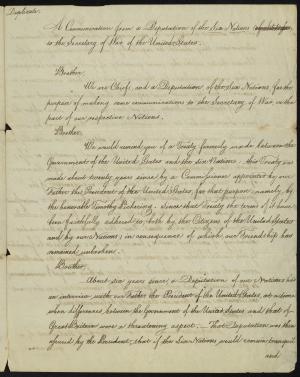 Duplicate.
A Communication from a Deputation of the Six Nations
to the Secretary of War of the United States.
Brother.
We are Chiefs, and a Deputation of the Six Nations, for the
purpose of making some communications to the Secretary of War, on the
part of our respective Nations.
Brother.
We would remind you of a Treaty formerly made between the
Government of the United States and the six Nations. this Treaty was
made about twenty years since by a Commissioner appointed by our
Father the President of the United States, for that purpose, namely, by
the honorable Timothy Pickering. Since that Treaty the terms of it have
been faithfully adhered to, both by the Citizens of the United States
and by our Nations; in consequence of which our Friendship has
remained unbroken.
Brother.
About six years since, a Deputation of our Nations had
an interview with our Father the President of the United States, at a time
when differences between the Government of the United States and that of
Great Britain wore a threatening aspect. That Deputation was then
advised by the President, that if the Six Nations would remain tranquil
and